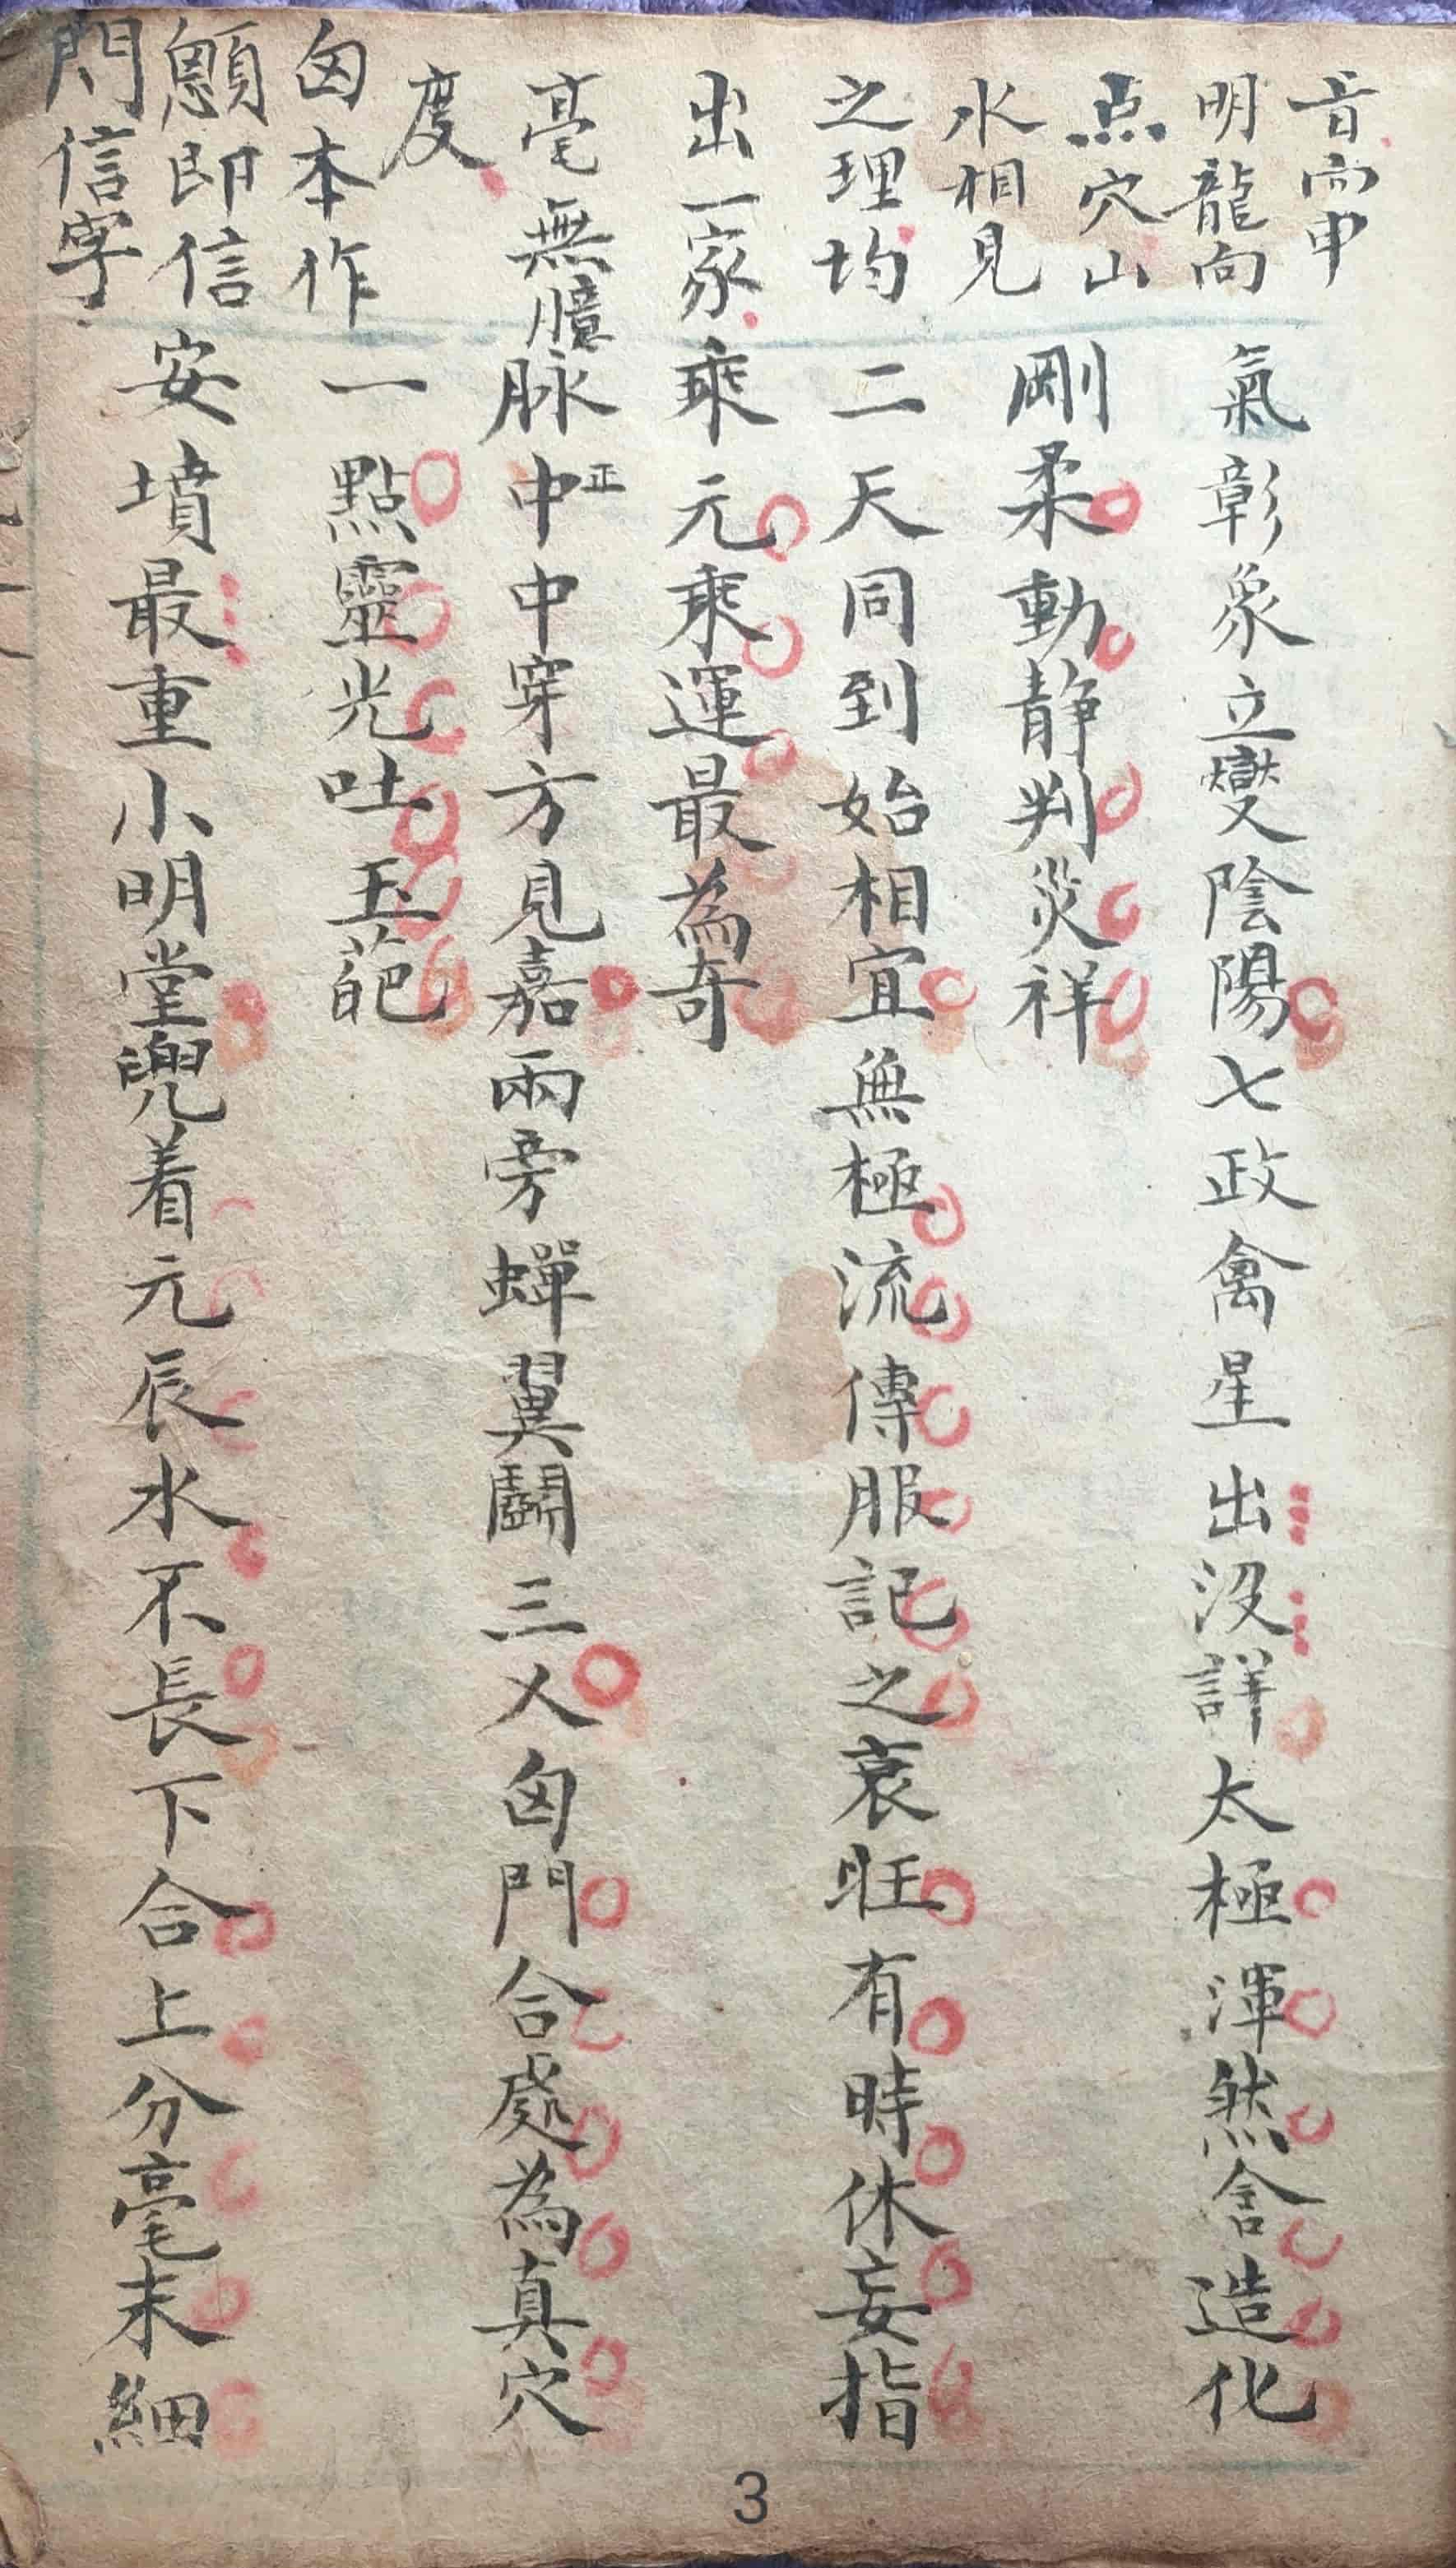 音而申
明龍向
点穴山
水相見
之理均
出一家
毫無臆
度
囟本作
顖即信
門信字
氣彰象立變陰陽七政禽星出沒詳太極渾然含造化
剛柔動静判災祥
二天同到始相宜無極流傳服記之衰旺有時休妄指
乘元乘運最為奇
脉中正中穿方見嘉兩旁蟬翼鬬三乂囟門合處為真穴
一點靈光吐玉葩
安墳最重小明堂兜着元辰水不長下合上分毫末細
3